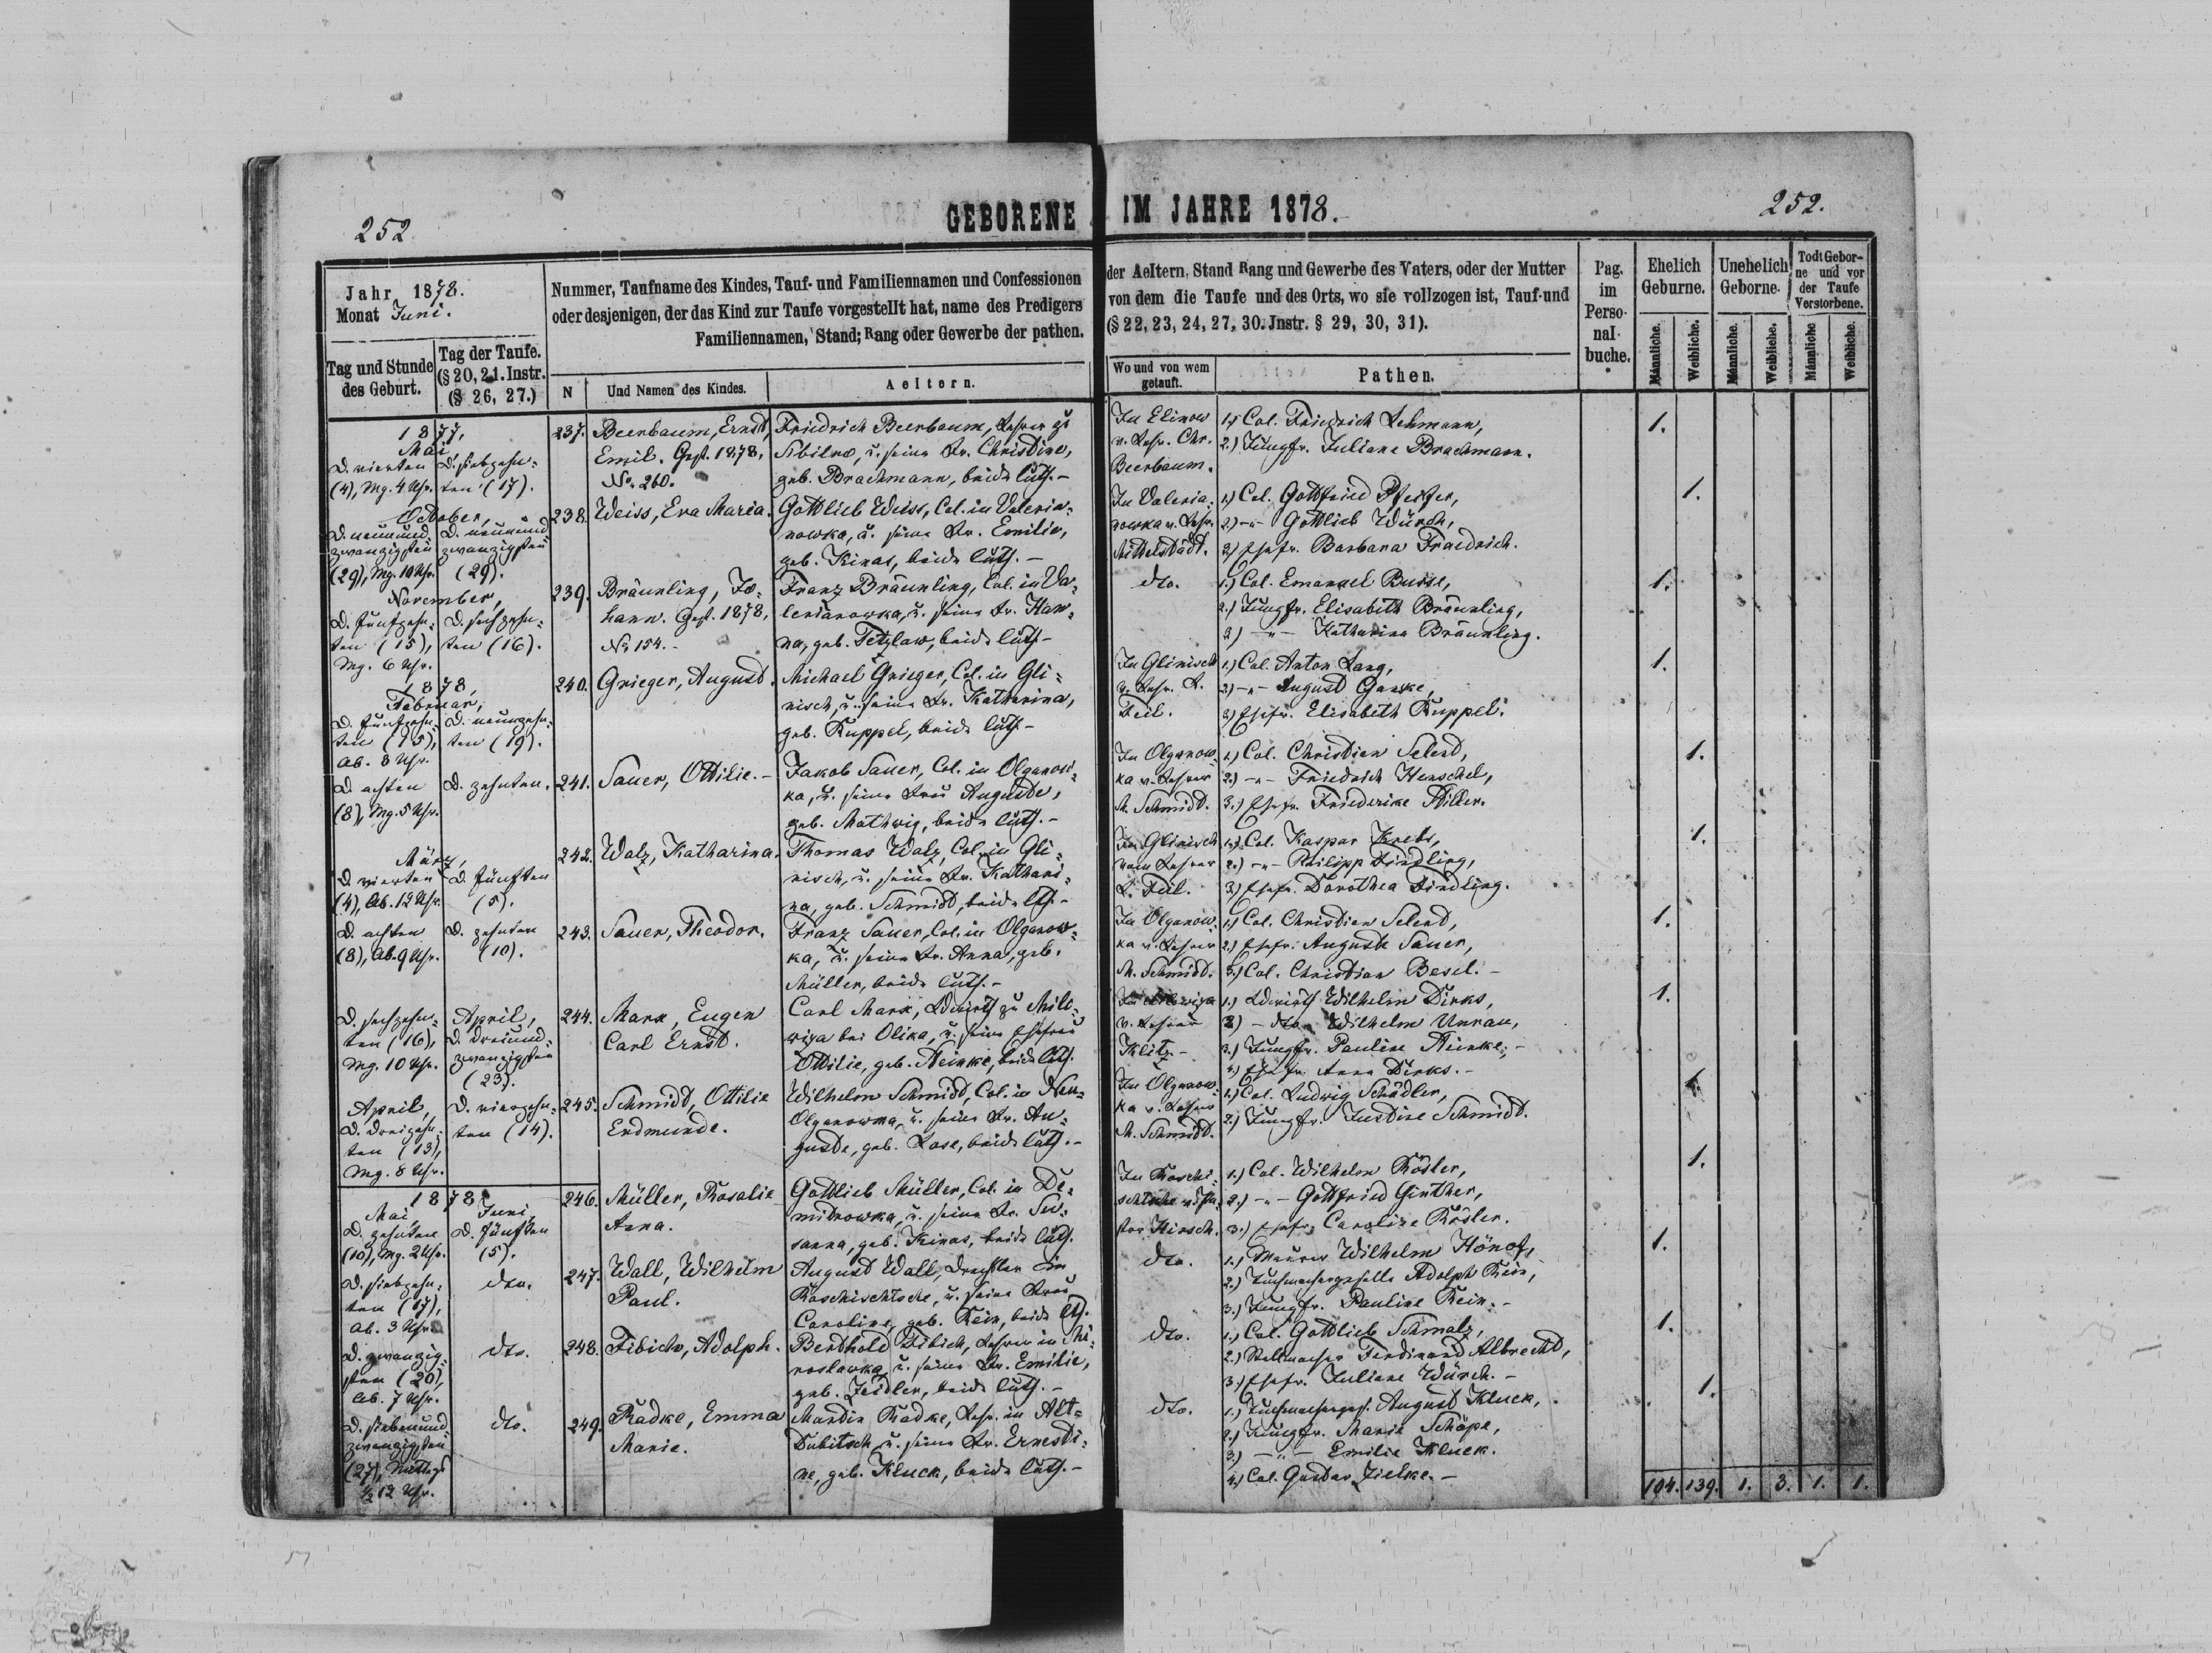 252.
GEBORENE IM JAHRE 1878.
252.
Jahr 1878.
Monat Juni.
Nummer, Taufname des Kindes, Tauf- und Familiennamen und Confessionen
oder desjenigen, der das Kind zur Taufe vorgestellt hat, name des Predigers
Familiennamen, Stand; Rang oder Gewerbe der pathen.
der Aeltern, Stand Rang und Gewerbe des Vaters, oder der Mutter
von dem die Taufe und des Orts, wo sie vollzogen ist, Tauf-und
(§ 22, 23, 24, 27, 30. Jnstr. § 29, 30, 31).
Pag.
im
Perso-
nal-
buche.
Ehelich
Geburne.
Unehelich
Geborne.
Todt Gebor-
ne und vor
der Taufe
Verstorbene.
Männliche.
Weibliche.
Männliche.
Weibliche.
Männliche
Weibliche.
Tag und Stunde
des Geburt.
Tag der Taufe.
(§ 20, 21. Instr.
(§ 26, 27.)
N
Und Namen des Kindes.
Aeltern.
Wo und von wem
getauft.
Pathen.
1877,
Mai,
D. vierten
(4), Mg. 4 Uhr.
D. siebzehn-
ten (17).
237.
Beerbaum, Ernst,
Emil. Gest. 1878,
No. 260.
Friedrich Beerbaum, Lehrer zu
Sibilno, u. seine Fr. Christine,
geb. Brachmann, beide luth.-
In Elinow
v. Lehr. Chr.
Beerbaum.
1.) Col. Friedrich Lehmann,
2.) Jungfr. Juliane Brachmann.
1.
October,
D. neunund
zwanzigsten
(29), Mg. 10 Uhr.
D. neunund
zwanzigsten
(29).
238.
Weiss, Eva Maria.
Gottlieb Weiss, Col. in Valeria-
nowka, u. seine Fr. Emilie,
geb. Kinas, beide luth.-
In Valeria-
nowka v. Lehr.
Mittelstädt.
1.) Col. Gottfried Pfeifer,
2.) -"- Gottlieb Würch,
3.) Ehefr. Barbara Fraedrich.
1.
November,
D. fünfzehn-
ten (15),
Mg. 6 Uhr.
D. sechzehn-
ten (16).
239.
Bräunling, Jo-
hann. Gest. 1878,
No. 154.-
Franz Bräunling, Col. in Va-
lerianowka, u. seine Fr. Han-
na, geb. Tetzlaw, beide luth-
dto.
1.) Col. Emanuel Busse,
2.) Jungfr. Elisabeth Bräunling,
3.) -"- Katharina Bräunling.
1.
1878,
Februar,
D. fünfzehn-
ten (15),
Ab. 8 Uhr.
D. neunzehn-
ten (19).
240.
Grieger, August.
Michael Grieger, Col. in Gli-
nisch, u. seine Fr. Katharina,
geb. Ruppel, beide luth-
In Glinisch
v. Lehr. L.
Feil.
1.) Col. Anton Lang,
2.) -"- August Ganske,
3.) Ehefr. Elisabeth Ruppel.
1.
D. achten
(8), Mg. 5 Uhr.
D. zehnten.
241.
Sauer, Ottilie.-
Jakob Sauer, Col. in Olganow-
ka, u. seine Frau Auguste,
geb. Mathwig, beide luth.-
In Olganow-
ka v. Lehrer
M. Schmidt.
1.) Col. Christian Selent,
2.) -"- Friedrich Henschel,
3.) Ehefr. Friederike Stiller.
1.
März,
D. vierten
(4), Ab. 12 Uhr.
D. fünften
(5).
242.
Walz, Katharina.
Thomas Walz, Col. in Gli-
nisch, u. seine Fr. Kathari-
na, geb. Schmidt, beide lth.-
In Glinisch
vom Lehrer
L. Feil.
1.) Col. Kaspar Krebs,
2.) -"- Philipp Findling,
3.) Ehefr. Dorothea Findling.
1.
D. achten
(8), Ab. 9 Uhr.
D. zehnten
(10).
243.
Sauer, Theodor.
Franz Sauer, Col. in Olganow-
ka, u. seine Fr. Anna, geb.
Müller, beide luth.-
In Olganow-
ka v. Lehrer
M. Schmidt.
1.) Col. Christian Selent,
2.) Ehefr. Auguste Sauer,
3.) Col. Christian Besel.-
1.
D. sechzehn-
ten (16),
Mg. 10 Uhr.
April,
D. dreiund-
zwanzigsten
(23).
244.
Marx, Eugen
Carl Ernst.
Carl Marx, Ldwirth zu
bei Olika, u. seine Ehefrau
Ottilie, geb. Neinke, beide luth.
v. Lehrer
Klitz.-
1.) Ldwirth Wilhelm Dirks,
2.) - dto - Wilhelm Unrau,
3.) Jungfr. Pauline Neinke,-
4.) Ehefr. Anna Dirks.-
1.
April,
D. dreizehn-
ten (13),
Mg. 8 Uhr.
D. vierzehn-
ten (14).
245.
Schmidt, Ottilie
Erdmunde.
Wilhelm Schmidt, Col. in Neu-
Olganowka, u. seine Fr. Au-
guste, geb. Rose, beide luth.-
In Olganow-
ka v. Lehrer
M. Schmidt.
1.) Col. Ludwig Schädler,
2.) Jungfr. Justine Schmidt.
1.
1878
Mai,
D. zehnten
(10), Mg. 2 Uhr.
Juni,
D. fünften
(5).
246.
Müller, Rosalie
Anna.
Gottlieb Müller, Col. in De-
mitrowka, u. seine Fr. Su-
sanna, geb. Kinas, beide luth.
In Roschi-
schtsche v. Pa-
stor Kersch.
1.) Col. Wilhelm Rösler,
2.) -"- Gottfried Ginther,
3.) Ehefr. Caroline Rösler.
1.
D. siebzehn-
ten (17),
Ab. 3 Uhr.
dto.
247.
Wall, Wilhelm
Paul.
August Wall, Drechsler in
Roschischtsche, u. seine Frau
Caroline, geb. Rein, beide lth.
dto.
1.) Maurer Wilhelm Hönof,
2.) Tuchmachergeselle Adolph Rein,
3.) Jungfr. Pauline Rein.-
1.
D. zwanzig-
sten (20),
Ab. 7 Uhr.
dto.
248.
Fibich, Adolph.
Berthold Fibich, Lehrer in Mi-
roslawka, u. seine Fr. Emilie,
geb. Zeidler, beide luth.-
dto.
1.) Col. Gottlieb Schmalz,
2.) Stellmacher Ferdinand Albrecht,
3.) Ehefr. Juliane Würch.-
1.
D. siebenund
zwanzigsten
(27), Mittags
½ 12 Uhr.
dto.
249.
Radke, Emma
Marie.
Martin Radke, Lehr. in Alt-
Dubitsch, u. seine Fr. Ernesti-
ne, geb. Kluck, beide luth.-
dto.
1.) Tuchmacherges. August Kluck,
2.) Jungfr. Marie Schöpe,
3.) -"- Emilie Kluck.
4.) Col. Gustav Zielke.-
1.
104. 139. 1. 3. 1. 1.